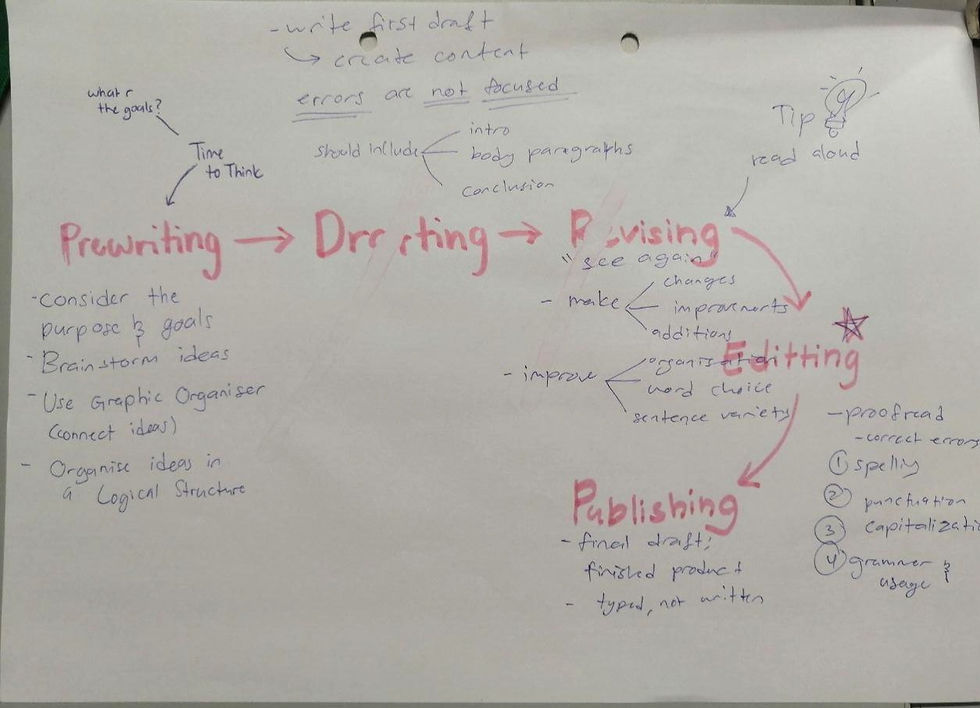 - write first draft
↳ create content
errors are not focused
should include
intro
body paragraphs
conclusion
what r
the goals?
Time
to Think
Tip
read aloud
Prewriting → Drafting → Revising
- consider the
purpose & goals
- Brainstorm ideas
- Use Graphic Organiser
(connect ideas)
- Organise ideas in
a Logical Structure
"see again"
- make
changes
improvements
additions
- improve
organisation
word choice
sentence variety
Editting
- proofread
- correct errors
① spelling
② punctuation
③ capitalizati
④ grammer &
usage
Publishing
- final draft;
finished product
- typed, not written